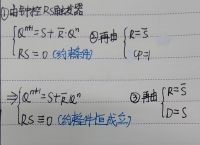 ①由钟控RS触发器
{Qⁿ⁺¹=S+R̄·Qⁿ
RS=0 (约束条件)
②再由{R=S̄
CP=1
⇒{Qⁿ⁺¹=S+R̄·Qⁿ
RS≡0 (约束件恒成立)
③再由{R=S̄
D=S